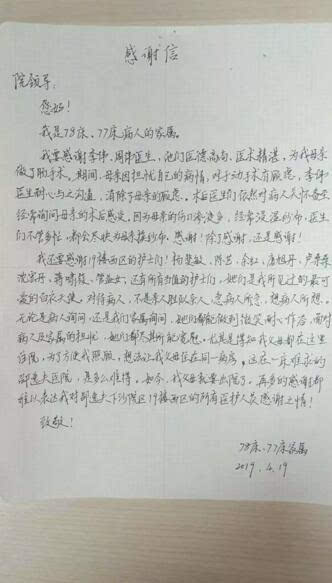 感谢信
院领导:
您好!
我是78床、77床病人的家属。
我要感谢李伟、周伟医生,他们医德高尚、医术精湛,为我母亲
做了肺手术。期间,母亲因担忧自己的病情,对手术有顾虑,李伟
医生耐心与之沟通,消除了母亲的顾虑。术后医生们依然对病人关怀备至,
经常询问母亲的术后感受,因为母亲的伤口渗液多,经常浸湿纱布,医生
们不管多忙,都会尽快为母亲换纱布,感谢!除了感谢,还是感谢!
我还要感谢19楼西区的护士们!杨楚敏、陈芸、余红、唐旭丹、
沈宗丹、蒋晴霞、管益女,还有所有当值的护士们,她们是我所见过的最可
爱的白衣天使。对待病人,不是亲人胜似亲人,急病人所急,想病人所想。
无论是病人询问,还是我们家属询问,她们都能做到微笑、耐心作答,面对
病人及家属的担忧,她们都尽其所能宽慰。尤其是得知我父母都在这里
住院,为了方便我照顾,想法让我父母住在同一病房,这在一床难求的
邵逸夫医院,是多么难得。如今,我父母就要出院了,再多的感谢都
难以表达我对邵逸夫下沙院区19楼西区的所有医护人员感谢之情!
致敬!
78床、77床家属
2019.4.19